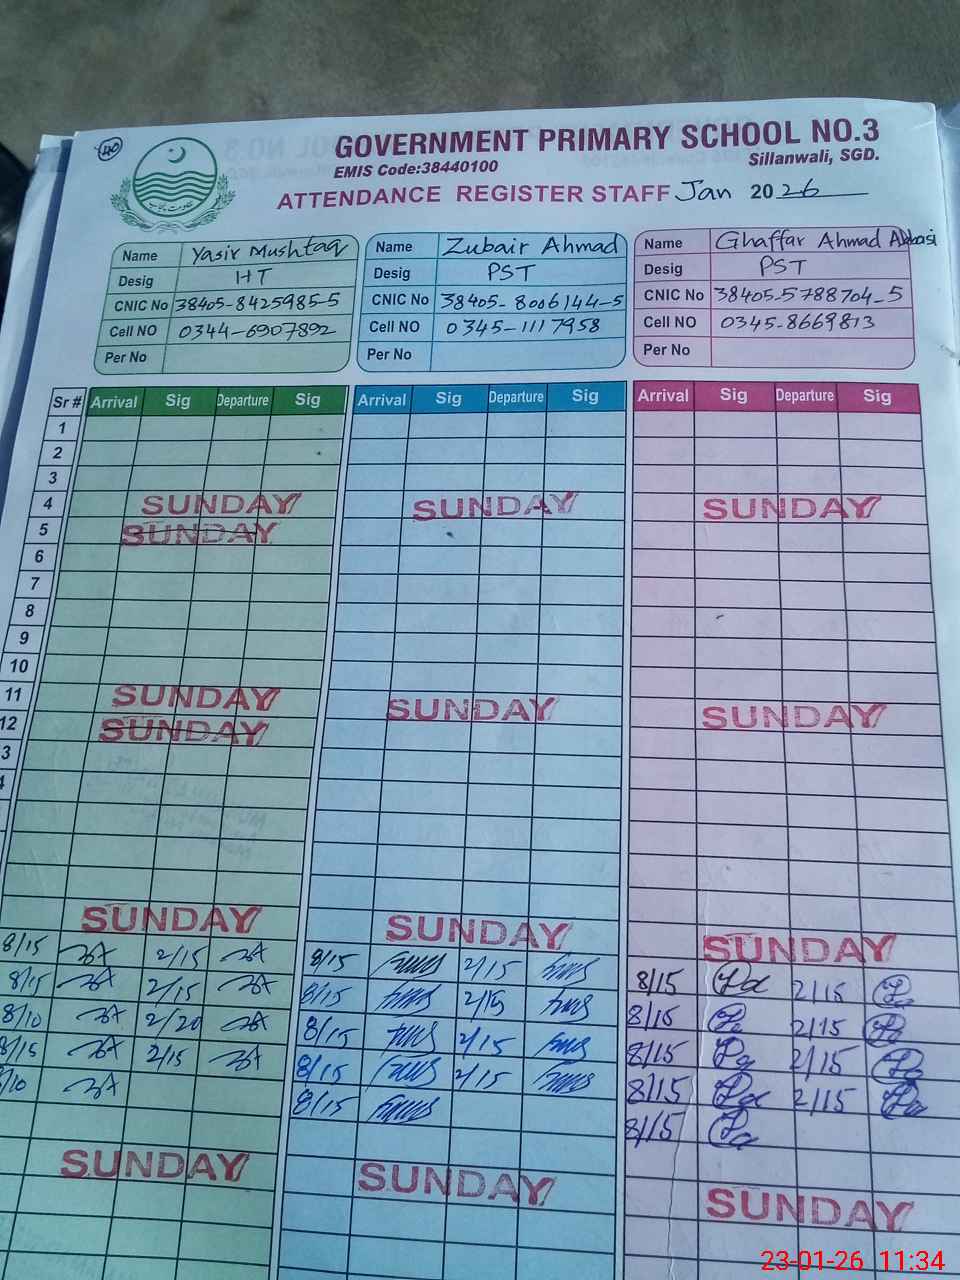 40
GOVERNMENT PRIMARY SCHOOL NO.3
EMIS Code:38440100
Sillanwali, SGD.
ATTENDANCE REGISTER STAFF Jan 2026
Name Yasir Mushtaq
Desig HT
CNIC No 38405-8425985-5
Cell NO 0344-6907892
Per No
Name Zubair Ahmad
Desig PST
CNIC No 38405-8006144-5
Cell NO 0345-1117958
Per No
Name Ghaffar Ahmad Abbasi
Desig PST
CNIC No 38405-5788704-5
Cell NO 0345-8669813
Per No
Sr # Arrival Sig Departure Sig Arrival Sig Departure Sig Arrival Sig Departure Sig
1
2
3
4 SUNDAY SUNDAY SUNDAY
5 SUNDAY
6
7
8
9
10
11 SUNDAY SUNDAY SUNDAY
12 SUNDAY
3
4
SUNDAY SUNDAY SUNDAY
8/15 2/15 8/15 2/15 8/15 2/15
8/15 2/15 8/15 2/15 8/15 2/15
8/10 2/20 8/15 2/15 8/15 2/15
8/15 2/15 8/15 2/15 8/15 2/15
8/10 8/15 8/15
SUNDAY SUNDAY SUNDAY
23-01-26 11:34